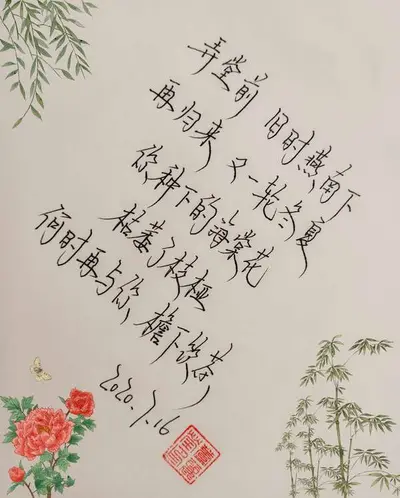 弄堂前 旧时燕南下
再归来 又一轮冬夏
你种下的海棠花
枯萎了枝桠
何时再与你 檐下煮茶
2020.7.16